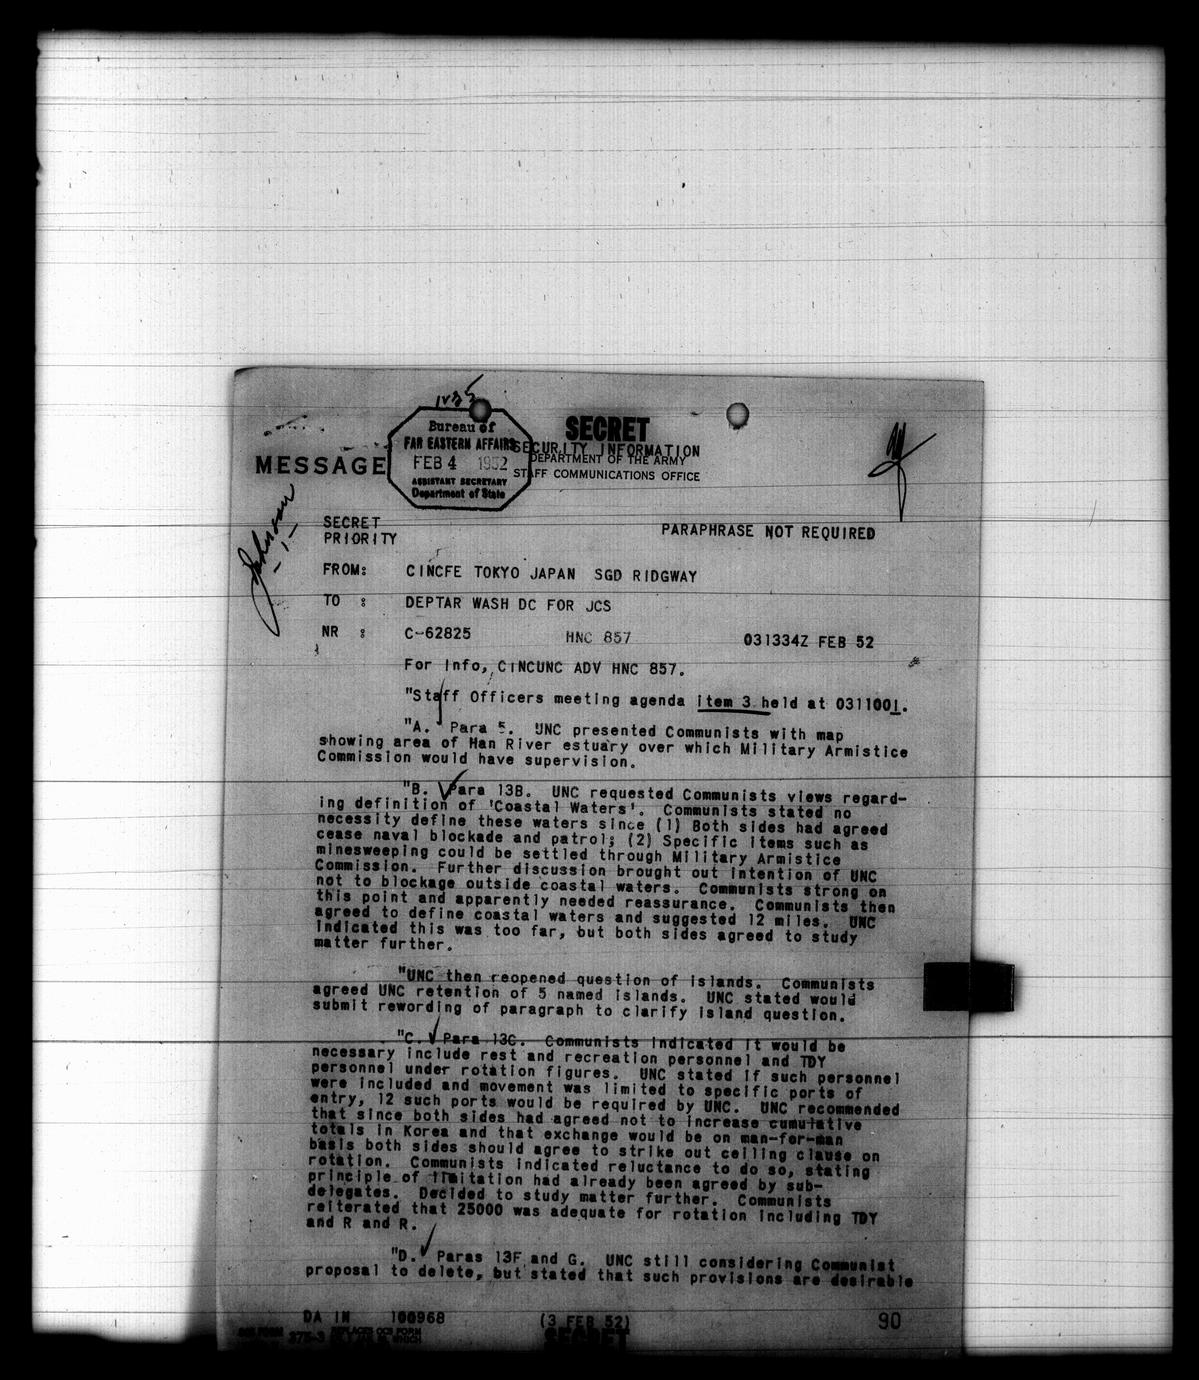 1435
Bureau of
FAR EASTERN AFFAIRS
FEB 4 1952
ASSISTANT SECRETARY
Department of State
SECRET
SECURITY INFORMATION
DEPARTMENT OF THE ARMY
STAFF COMMUNICATIONS OFFICE
MESSAGE
Johnson
-1-
SECRET
PRIORITY
PARAPHRASE NOT REQUIRED
FROM: CINCFE TOKYO JAPAN SGD RIDGWAY
TO : DEPTAR WASH DC FOR JCS
NR : C-62825 HNC 857 031334Z FEB 52
For info, CINCUNC ADV HNC 857.
"Staff Officers meeting agenda item 3 held at 031100I.
"A. Para 5. UNC presented Communists with map
showing area of Han River estuary over which Military Armistice
Commission would have supervision.
"B. Para 13B. UNC requested Communists views regard-
ing definition of 'Coastal Waters'. Communists stated no
necessity define these waters since (1) Both sides had agreed
cease naval blockade and patrol; (2) Specific items such as
minesweeping could be settled through Military Armistice
Commission. Further discussion brought out intention of UNC
not to blockage outside coastal waters. Communists strong on
this point and apparently needed reassurance. Communists then
agreed to define coastal waters and suggested 12 miles. UNC
indicated this was too far, but both sides agreed to study
matter further.
"UNC then reopened question of islands. Communists
agreed UNC retention of 5 named islands. UNC stated would
submit rewording of paragraph to clarify island question.
"C. Para 13C. Communists indicated it would be
necessary include rest and recreation personnel and TDY
personnel under rotation figures. UNC stated if such personnel
were included and movement was limited to specific ports of
entry, 12 such ports would be required by UNC. UNC recommended
that since both sides had agreed not to increase cumulative
totals in Korea and that exchange would be on man-for-man
basis both sides should agree to strike out ceiling clause on
rotation. Communists indicated reluctance to do so, stating
principle of limitation had already been agreed by sub-
delegates. Decided to study matter further. Communists
reiterated that 25000 was adequate for rotation including TDY
and R and R.
"D. Paras 13F and G. UNC still considering Communist
proposal to delete, but stated that such provisions are desirable
DA IN 100968 (3 FEB 52) 90
375-3 REPLACES OCS FORM
SECRET